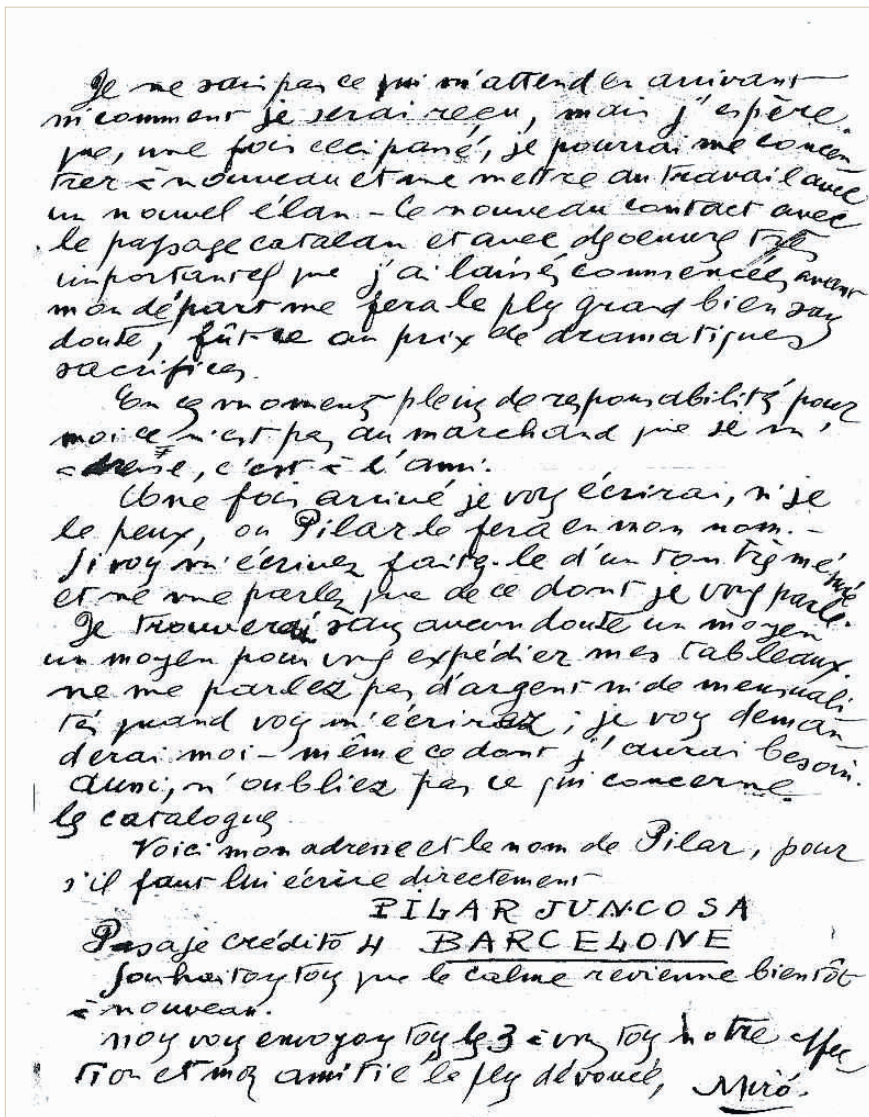 Je ne sais pas ce qui m'attend en arrivant
ni comment je serai reçu, mais j'espère
que, une fois ceci passé, je pourrai me concen
trer à nouveau et me mettre au travail avec
un nouvel élan - le nouveau contact avec
le paysage catalan et avec des oeuvres très
importantes que j'ai laissées commencées avant
mon départ me fera le plus grand bien sans
doute, fût-ce au prix de dramatiques
sacrifices.
En ces moments pleins de responsabilités pour
moi ce n'est pas au marchand que je m'
adresse, c'est à l'ami.
Une fois arrivé je vous écrirai, si je
le peux, ou Pilar le fera en mon nom. -
Si vous m'écrivez faites-le d'un ton très mesuré
et ne me parlez que de ce dont je vous parle.
Je trouverai sans aucun doute un moyen
un moyen pour vous expédier mes tableaux.
ne me parlez pas d'argent ni de mensuali
tés quand vous m'écrirez ; je vous deman
derai moi-même ce dont j'aurai besoin.
Aussi, n'oubliez pas ce qui concerne
les catalogues
Voici mon adresse et le nom de Pilar, pour
s'il faut lui écrire directement
PILAR JUNCOSA
Pasaje Crédito 4 BARCELONE
Souhaitons tous que le calme revienne bientôt
à nouveau.
Nous vous envoyons tous les 3 à vous tous notre affec
tion et mon amitié la plus dévouée, Miró.